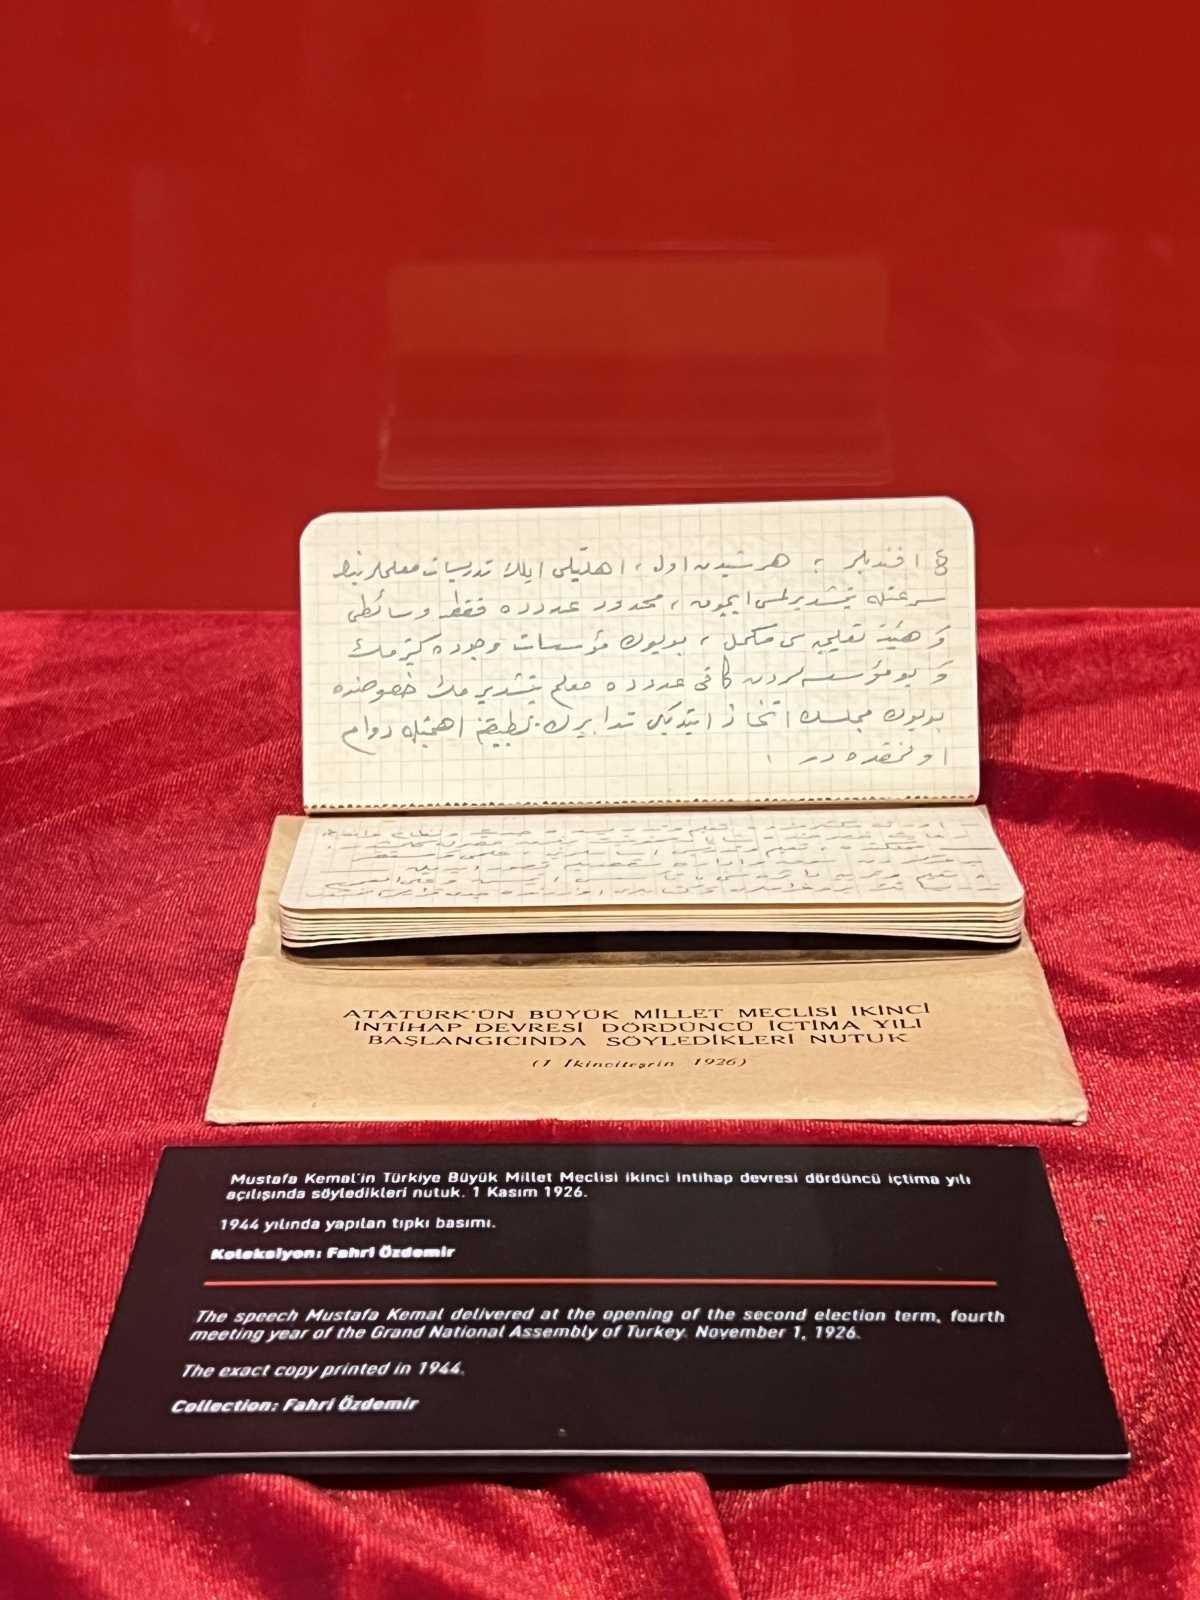 § افندیلر ؛ هر شیدن اول ، اهلیتلی ایلك تدریسات معلملرینڭ
سرعتله یتیشدیرلمسی ایچون ، محدود عددده فقط وسائطی
و هیئت تعلیمیه سی مكمل ، بویوك مؤسسات وجوده كتیرمك
و بو مؤسسه لردن كافی عددده معلم یتیشدیرمك خصوصنده
بویوك مجلسك اتخاذ ایتدیكی تدابیرك تطبیقنه اهمیتله دوام
اولنمقده در .
ATATÜRK'ÜN BÜYÜK MİLLET MECLİSİ İKİNCİ
İNTİHAP DEVRESİ DÖRDÜNCÜ İÇTİMA YILI
BAŞLANGICINDA SÖYLEDİKLERİ NUTUK
(1 İkinciteşrin 1926)
Mustafa Kemal'in Türkiye Büyük Millet Meclisi ikinci intihap devresi dördüncü içtima yılı
açılışında söyledikleri nutuk. 1 Kasım 1926.
1944 yılında yapılan tıpkı basımı.
Koleksiyon: Fahri Özdemir
The speech Mustafa Kemal delivered at the opening of the second election term, fourth
meeting year of the Grand National Assembly of Turkey. November 1, 1926.
The exact copy printed in 1944.
Collection: Fahri Özdemir